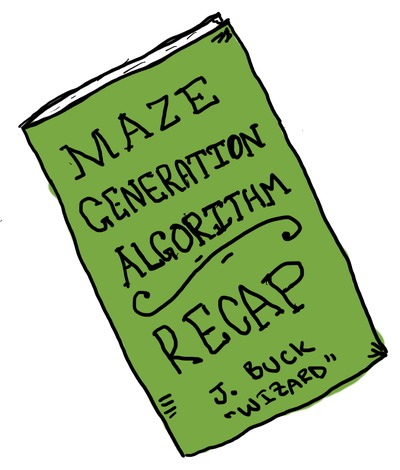 MAZE
GENERATION
ALGORITHM
RECAP
J. BUCK
"WIZARD"